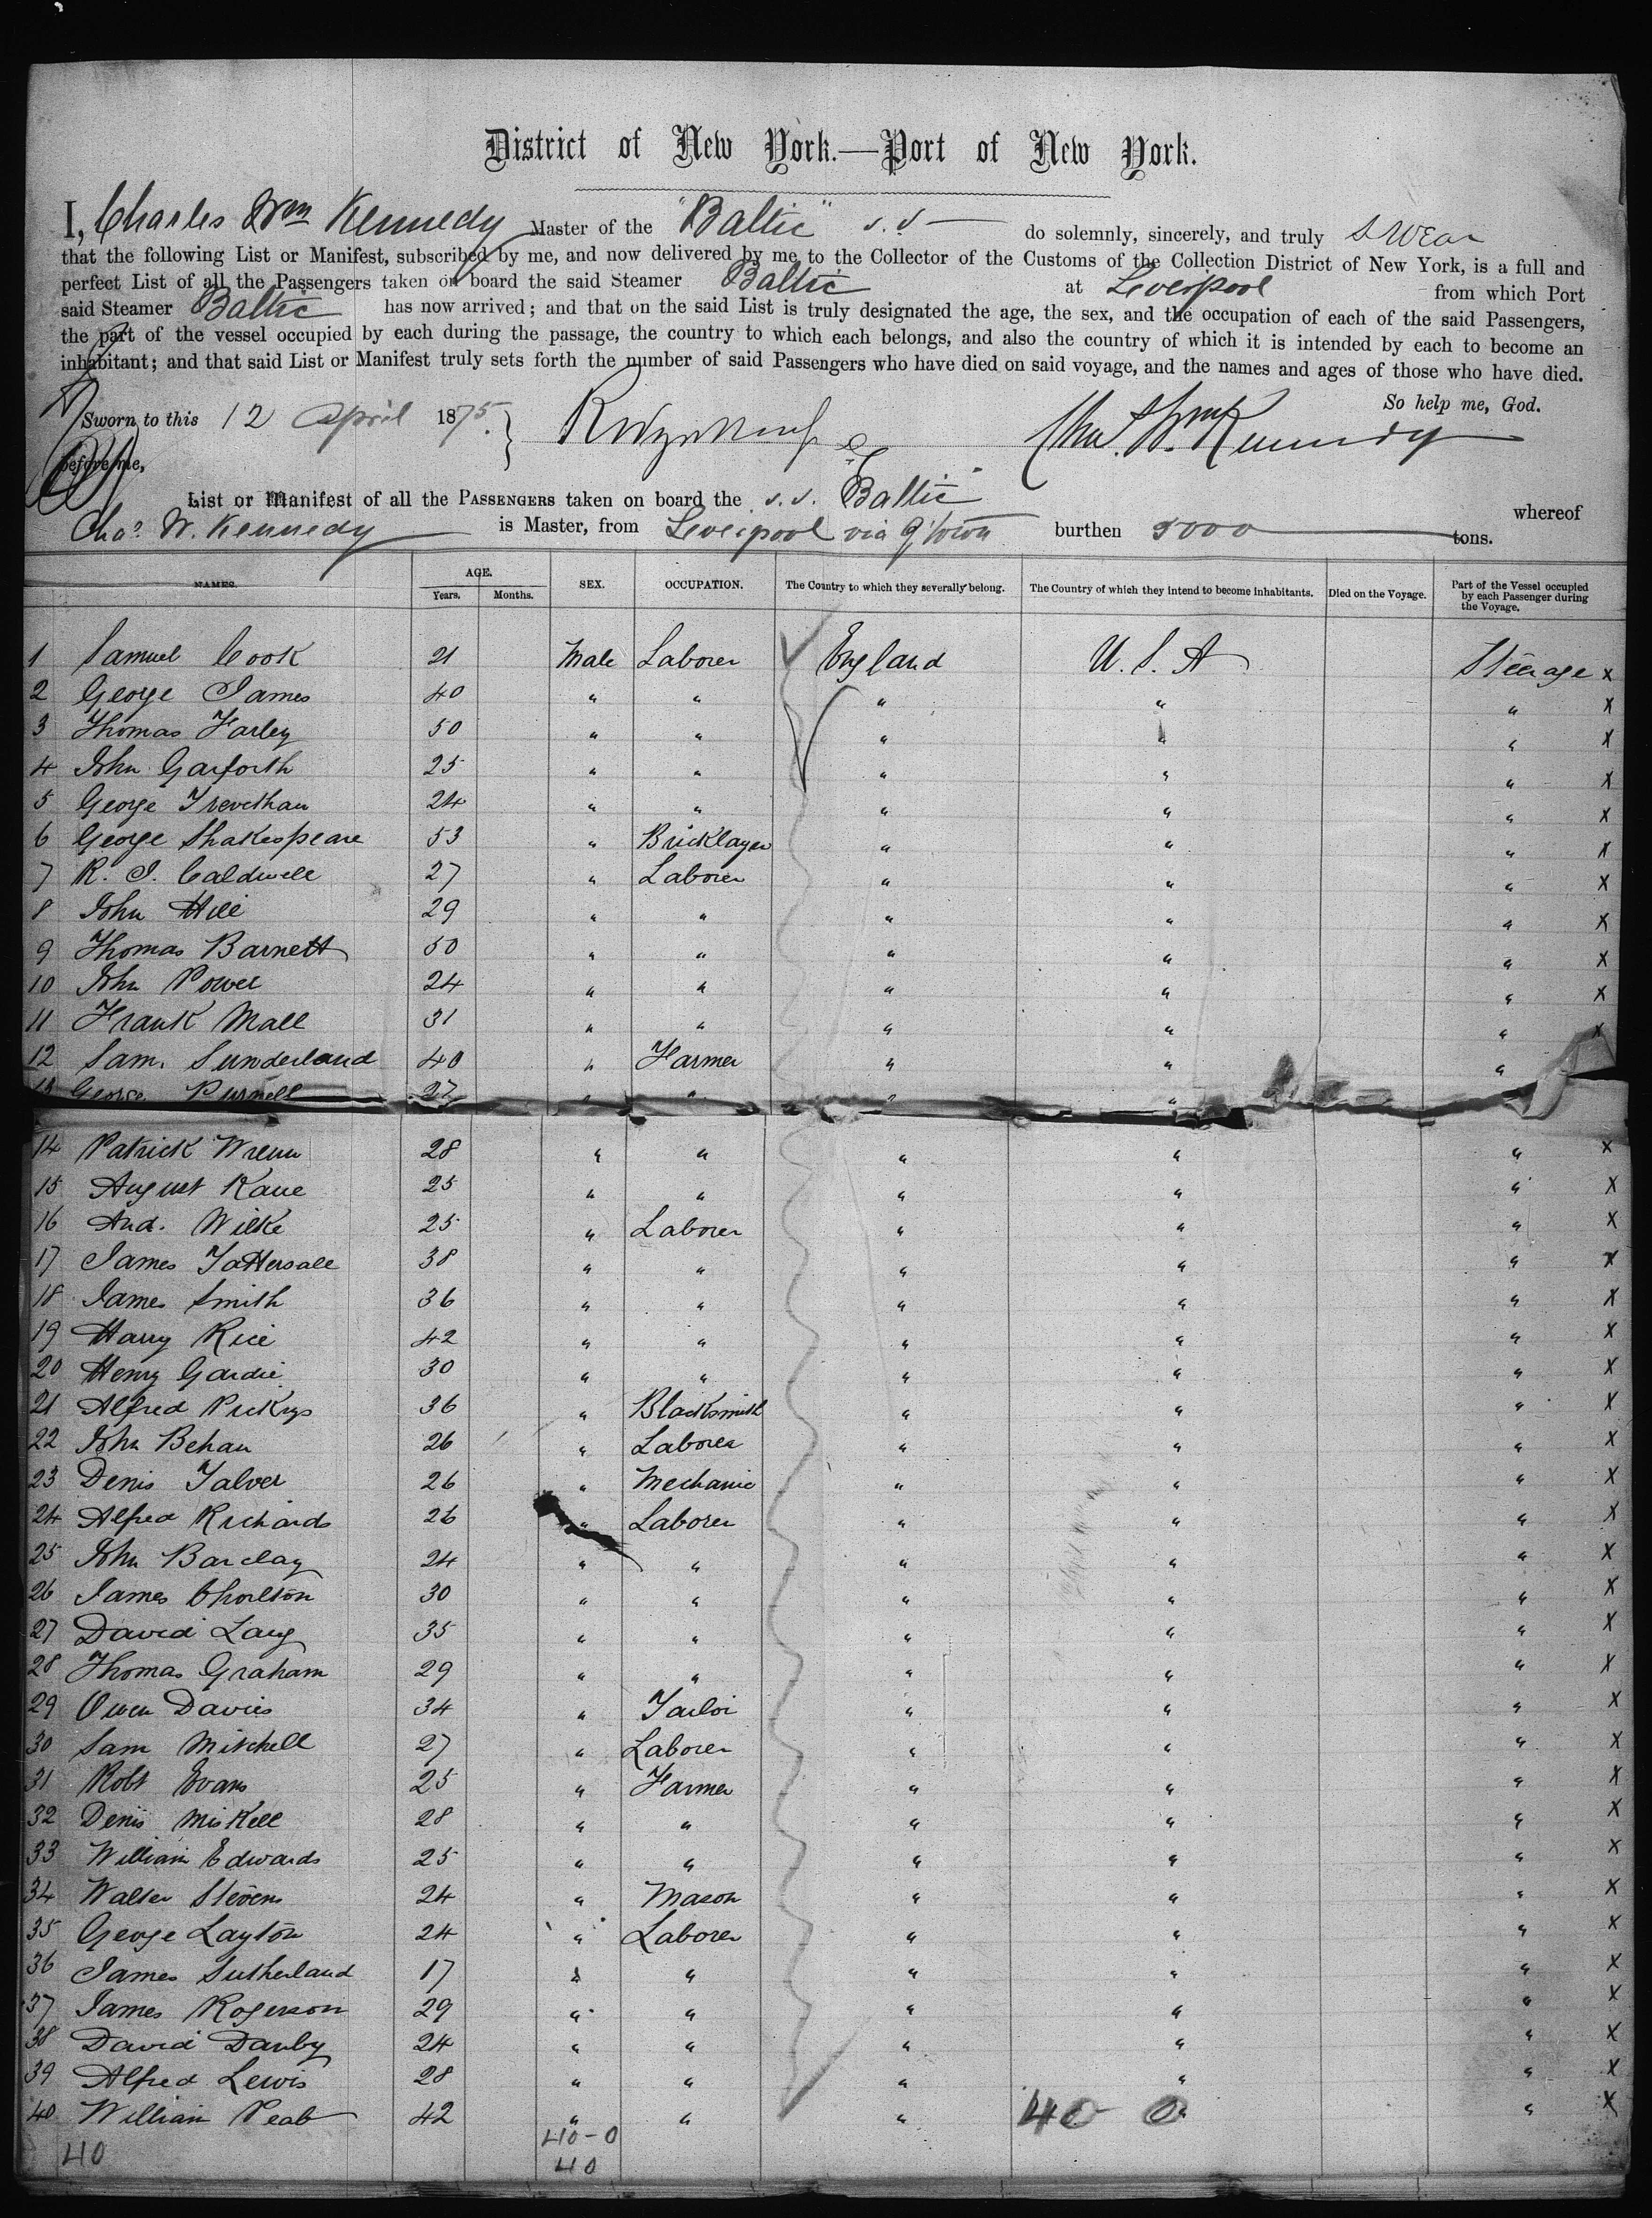 District of New York.—Port of New York.
I, Charles Wm Kennedy Master of the "Baltic" s.s. do solemnly, sincerely, and truly swear
that the following List or Manifest, subscribed by me, and now delivered by me to the Collector of the Customs of the Collection District of New York, is a full and
perfect List of all the Passengers taken on board the said Steamer Baltic at Liverpool from which Port
said Steamer Baltic has now arrived; and that on the said List is truly designated the age, the sex, and the occupation of each of the said Passengers,
the part of the vessel occupied by each during the passage, the country to which each belongs, and also the country of which it is intended by each to become an
inhabitant; and that said List or Manifest truly sets forth the number of said Passengers who have died on said voyage, and the names and ages of those who have died.
So help me, God.
Sworn to this 12 April 1875. Chas. Wm Kennedy
before me,
List or Manifest of all the PASSENGERS taken on board the s.s. Baltic whereof
Chas. W. Kennedy is Master, from Liverpool via Q'town burthen 5000 tons.
NAMES. AGE. Years. Months. SEX. OCCUPATION. The Country to which they severally belong. The Country of which they intend to become inhabitants. Died on the Voyage. Part of the Vessel occupied by each Passenger during the Voyage.
1 Samuel Cook 21 Male Laborer England U.S.A Steerage x
2 George James 40 " " " " " x
3 Thomas Farley 50 " " " " " x
4 John Garforth 25 " " " " " x
5 George Trevethan 24 " " " " " x
6 George Shakespeare 53 " Bricklayer " " " x
7 R. J. Caldwell 27 " Laborer " " " x
8 John Hill 29 " " " " " x
9 Thomas Barnett 50 " " " " " x
10 John Power 24 " " " " " x
11 Frank Mall 31 " " " " " x
12 Sam. Sunderland 40 " Farmer " " "
13 George Purnell 27 " " " "
14 Patrick Wrenn 28 " " " " " x
15 August Kane 25 " " " " " x
16 And. Wilke 25 " Laborer " " " x
17 James Tattersall 38 " " " " " x
18 James Smith 36 " " " " " x
19 Harry Rice 42 " " " " " x
20 Henry Gardie 30 " " " " " x
21 Alfred 36 " Blacksmith " " " x
22 John Behan 26 " Laborer " " " x
23 Denis Talver 26 " Mechanic " " " x
24 Alfred Richards 26 " Laborer " " " x
25 John Barclay 24 " " " " " x
26 James Chorlton 30 " " " " " x
27 David Lang 35 " " " " " x
28 Thomas Graham 29 " " " " " x
29 Owen Davies 34 " Tailor " " " x
30 Sam Mitchell 27 " Laborer " " " x
31 Robt Evans 25 " Farmer " " " x
32 Denis Miskell 28 " " " " " x
33 William Edwards 25 " " " " " x
34 Walter Stevens 24 " Mason " " " x
35 George Layton 24 " Laborer " " " x
36 James Sutherland 17 " " " " " x
37 James Rogerson 29 " " " " " x
38 David Danby 24 " " " " " x
39 Alfred Lewis 28 " " " " " x
40 William Peab 42 " " " " " x
40 0
40-0
40 40